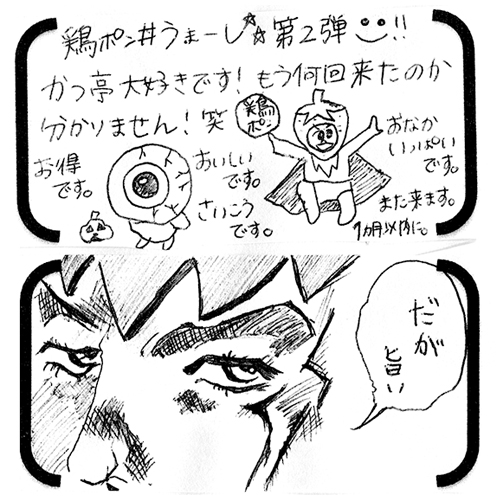 鶏ポン丼うまーし☆☆第2弾!!
かつ亭大好きです!もう何回来たのか
分かりません!笑
お得
です。
おいしい
です。
さいこう
です。
鶏
ポン
おなか
いっぱい
です。
また来ます。
1カ月以内に。
だが
旨い